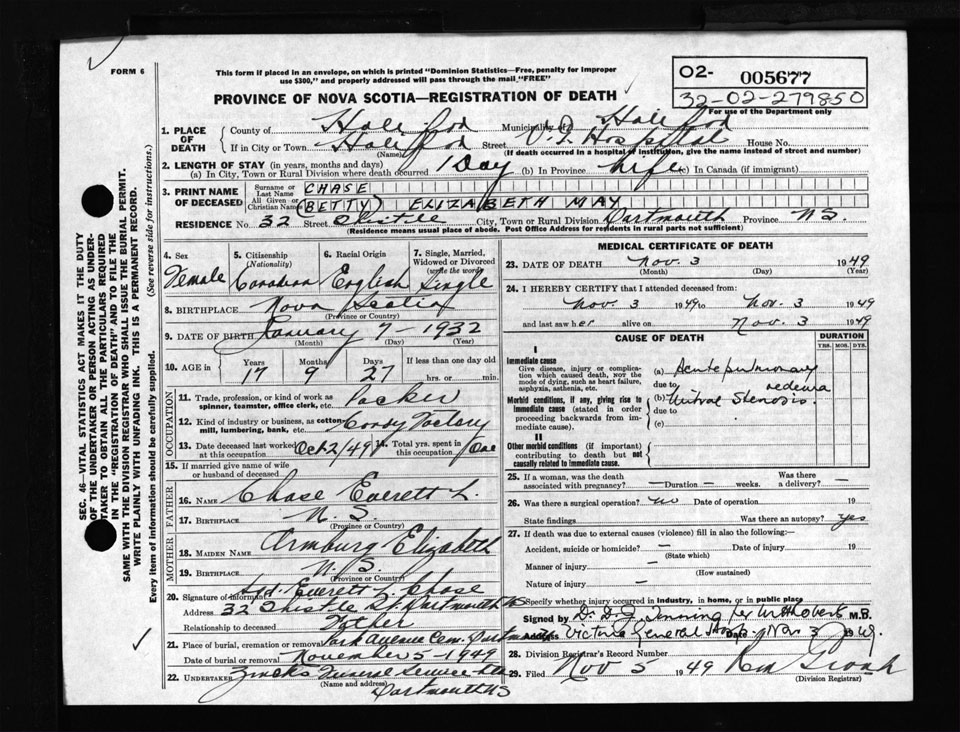 FORM 6
This form if placed in an envelope, on which is printed "Dominion Statistics—Free, penalty for improper
use $300," and properly addressed will pass through the mail "FREE"
PROVINCE OF NOVA SCOTIA—REGISTRATION OF DEATH
02- 005677
32-02-279850
For use of the Department only
1. PLACE OF DEATH
County of Halifax Municipality of Halifax
If in City or Town Halifax Street V.G. Hospital House No.
(Name) (If death occurred in a hospital or institution, give the name instead of street and number)
2. LENGTH OF STAY (in years, months and days)
(a) In City, Town or Rural Division where death occurred 1 Day (b) In Province Life (c) In Canada (if immigrant)
3. PRINT NAME OF DECEASED
Surname or Last Name CHASE
All Given or Christian Names (BETTY) ELIZABETH MAY
RESIDENCE No. 32 Street Thistle City, Town or Rural Division Dartmouth Province N.S.
(Residence means usual place of abode. Post Office Address for residents in rural parts not sufficient)
4. Sex Female
5. Citizenship (Nationality) Canadian
6. Racial Origin English
7. Single, Married, Widowed or Divorced (write the word) Single
8. BIRTHPLACE Nova Scotia
(Province or Country)
9. DATE OF BIRTH January 7 - 1932
(Month) (Day) (Year)
10. AGE in Years 17 Months 9 Days 27 If less than one day old
hrs. or min.
OCCUPATION
11. Trade, profession, or kind of work as spinner, teamster, office clerk, etc. Packer
12. Kind of industry or business, as cotton mill, lumbering, bank, etc. Candy Factory
13. Date deceased last worked at this occupation Oct 2/49 14. Total yrs. spent in this occupation One
15. If married give name of wife or husband of deceased
FATHER
16. NAME Chase Everett L.
17. BIRTHPLACE N.S.
(Province or Country)
MOTHER
18. MAIDEN NAME Armburg Elizabeth
19. BIRTHPLACE N.S.
(Province or Country)
20. Signature of informant Sgd. Everett L. Chase
Address 32 Thistle St. Dartmouth NS
Relationship to deceased Father
21. Place of burial, cremation or removal Park Avenue Cem. Dartmouth
Date of burial or removal November 5 - 1949
22. UNDERTAKER Zincks Funeral Service Ltd
(Name and address)
Dartmouth NS
MEDICAL CERTIFICATE OF DEATH
23. DATE OF DEATH Nov. 3 1949
(Month) (Day) (Year)
24. I HEREBY CERTIFY that I attended deceased from:
Nov. 3 1949 to Nov. 3 1949
and last saw her alive on Nov. 3 1949
CAUSE OF DEATH
DURATION
YRS. MOS. DYS.
I
Immediate cause
Give disease, injury or complication which caused death, NOT the mode of dying, such as heart failure, asphyxia, asthenia, etc.
(a) Acute pulmonary
oedema
due to
Morbid conditions, if any, giving rise to immediate cause (stated in order proceeding backwards from immediate cause).
(b) Mitral Stenosis.
due to
(c)
II
Other morbid conditions (if important) contributing to death but not causally related to immediate cause.
25. If a woman, was the death associated with pregnancy? — Duration — weeks. Was there a delivery? —
26. Was there a surgical operation? no Date of operation 19
State findings Was there an autopsy? yes
27. If death was due to external causes (violence) fill in also the following:—
Accident, suicide or homicide? — Date of injury 19
(State which)
Manner of injury —
(How sustained)
Nature of injury —
Specify whether injury occurred in industry, in home, or in public place
Signed by M.D.
Address Victoria General Hosp Date Nov 3 1949
28. Division Registrar's Record Number
29. Filed Nov 5 1949
(Division Registrar)
SEC. 46—VITAL STATISTICS ACT MAKES IT THE DUTY
OF THE UNDERTAKER OR PERSON ACTING AS UNDERTAKER TO OBTAIN ALL THE PARTICULARS REQUIRED
IN THE "REGISTRATION OF DEATH" AND TO FILE THE
SAME WITH THE DIVISION REGISTRAR WHO SHALL ISSUE THE BURIAL PERMIT.
WRITE PLAINLY WITH UNFADING INK. THIS IS A PERMANENT RECORD.
Every item of information should be carefully supplied. (See reverse side for instructions.)